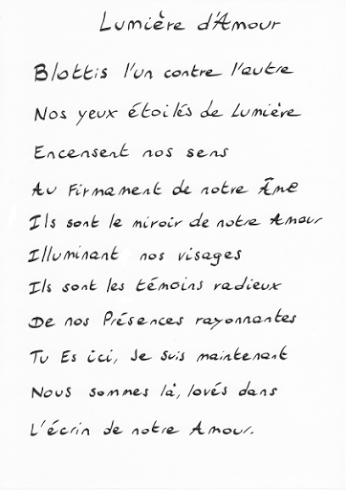 Lumière d'Amour
Blottis l'un contre l'autre
Nos yeux étoilés de Lumière
Encensent nos sens
Au Firmament de notre Âme
Ils sont le miroir de notre Amour
Illuminant nos visages
Ils sont les témoins radieux
De nos Présences rayonnantes
Tu Es ici, Je suis maintenant
Nous sommes là, lovés dans
L'écrin de notre Amour.